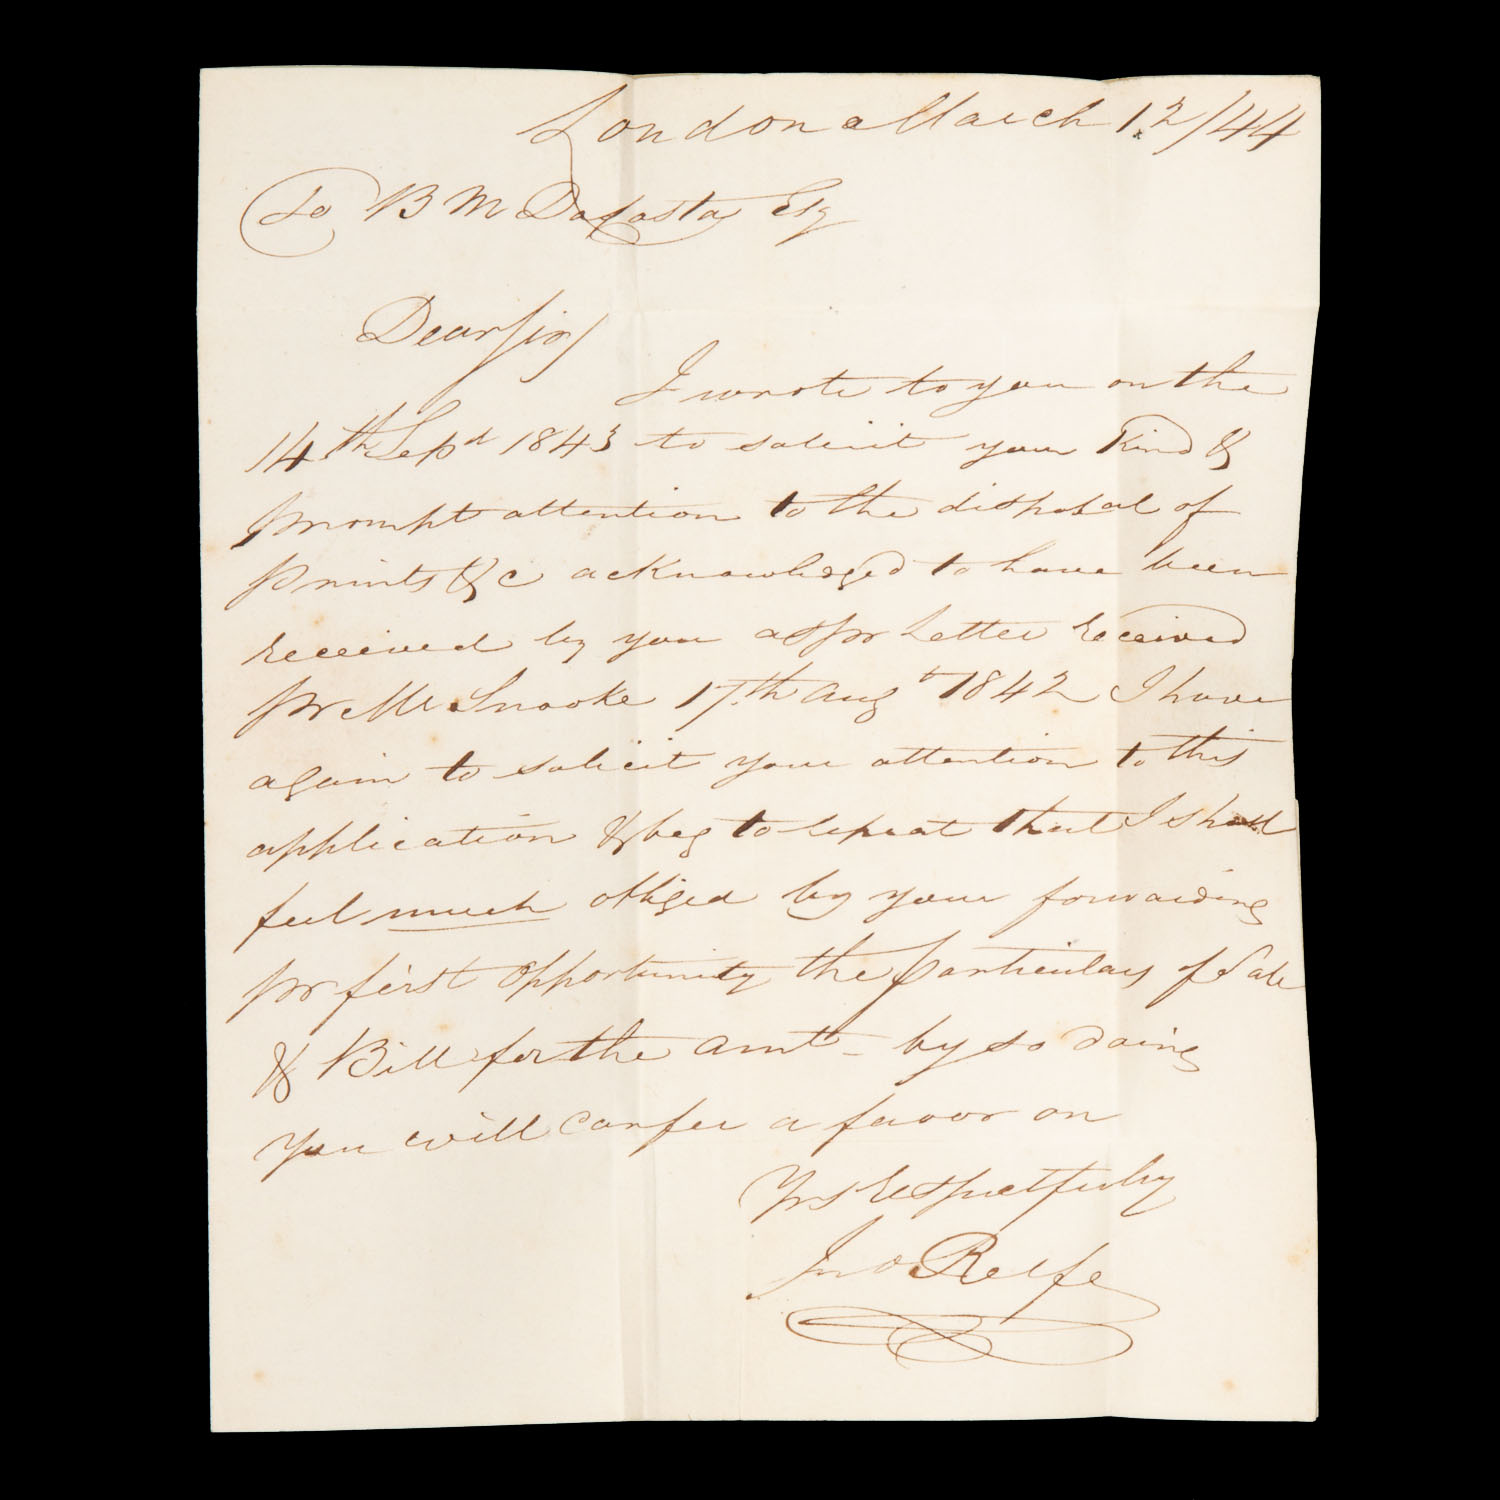 London March 12/44
To B M DaCosta Esq
Dear Sir/
I wrote to you on the
14th Sepd 1843 to solicit your kind &
prompt attention to the disposal of
prints &c acknowledged to have been
received by you as pr Letter received
pr Mr Snooke 17th Augt 1842 I have
again to solicit your attention to this
application & beg to repeat that I shall
feel much obliged by your forwarding
pr first opportunity the particulars of Sale
& Bill for the amt - by so doing
you will confer a favor on
Yrs respectfully
Jno Relfe